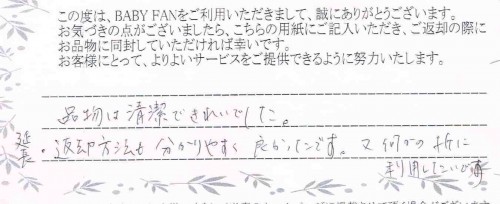 この度は、BABY FANをご利用いただきまして、誠にありがとうございます。
お気づきの点がございましたら、こちらの用紙にご記入いただき、ご返却の際に
お品物に同封していただければ幸いです。
お客様にとって、よりよいサービスをご提供できるように努力いたします。
品物は清潔できれいでした。
延長・返却方法も分かりやすく良かったです。又何かの折に
利用したいです